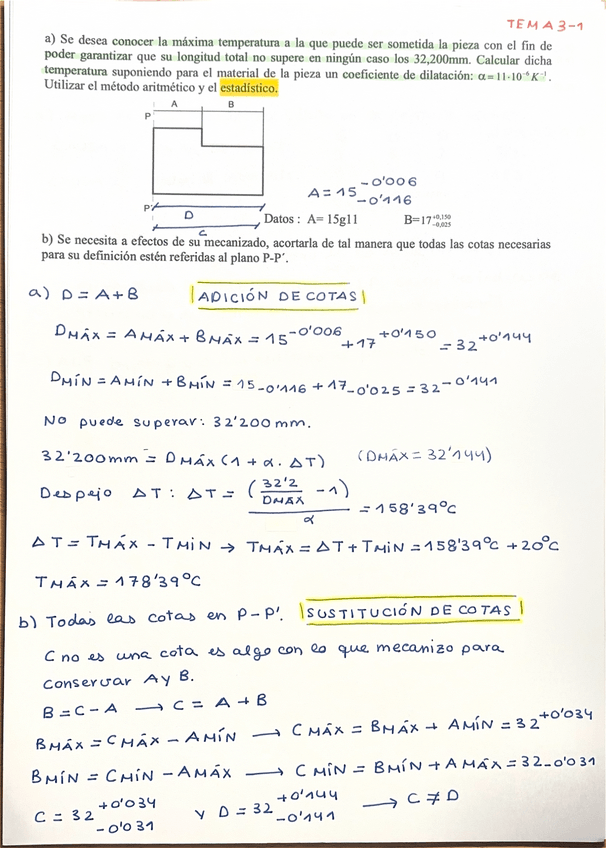 TEMA 3-1
a) Se desea conocer la máxima temperatura a la que puede ser sometida la pieza con el fin de
poder garantizar que su longitud total no supere en ningún caso los 32,200mm. Calcular dicha
temperatura suponiendo para el material de la pieza un coeficiente de dilatación: α=11·10⁻⁶K⁻¹.
Utilizar el método aritmético y el estadístico.
A B
P
P'
D
C
A = 15 -0'006 -0'116
Datos : A= 15g11 B=17 +0,150 -0,025
b) Se necesita a efectos de su mecanizado, acortarla de tal manera que todas las cotas necesarias
para su definición estén referidas al plano P-P´.
a) D = A + B ADICIÓN DE COTAS
DMÁX = AMÁX + BMÁX = 15 -0'006 + 17 +0'150 = 32 +0'144
DMÍN = AMÍN + BMÍN = 15 -0'116 + 17 -0'025 = 32 -0'141
No puede superar: 32'200 mm.
32'200mm = DMÁX (1 + α. ΔT) (DMÁX = 32'144)
Despejo ΔT : ΔT = (32'2/DMÁX - 1)/α = 158'39ºC
ΔT = TMÁX - TMIN → TMÁX = ΔT + TMIN = 158'39ºC + 20ºC
TMÁX = 178'39ºC
b) Todas las cotas en P-P'. SUSTITUCIÓN DE COTAS
C no es una cota es algo con lo que mecanizo para
conservar A y B.
B = C - A → C = A + B
BMÁX = CMÁX - AMÍN → CMÁX = BMÁX + AMÍN = 32 +0'034
BMÍN = CMÍN - AMÁX → CMÍN = BMÍN + AMÁX = 32 -0'031
C = 32 +0'034 -0'031 y D = 32 +0'144 -0'141 → C ≠ D